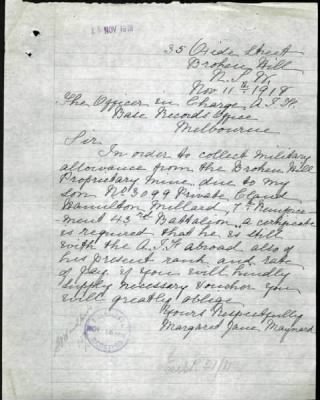 NOV 1918
35 Oxide Street
Broken Hill
N.S.W.
Nov 11th 1918
The Officer in Charge A.I.F.
Base Records Office
Melbourne
Sir,
In order to collect military
allowance from the Broken Hill
Proprietary Mine due to my
son No 3099 Private
Hamilton Millard, 7th Reinforce
ment 43rd Battalion, a certificate
is required that he is still
with the A.I.F abroad also of
his present rank and rate
of pay if you will kindly
supply necessary voucher you
will greatly oblige
Yours Respectfully
Margaret Jane Maynard